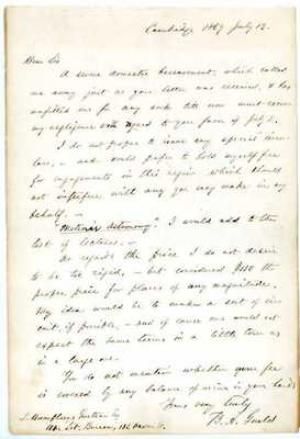 Cambridge 1869 July 13.
Dear Sir
A severe domestic bereavement, which called
me away just as your letter was received, & has
unfitted me for any work till now must excuse
my negligence with regard to your favor of July 2.
I do not propose to issue any special circu-
lars, – and would prefer to hold myself free
for engagements in this region which should
not interfere with any you may make in my
behalf. –
"Meteoric Astronomy" I would add to the
list of lectures. –
As regards the price I do not desire
to be too rigid, – but considered $100 the
proper price for places of any magnitude.
My idea would be to make a sort of cir-
cuit, if possible, – and of course one would not
expect the same terms in a little town as
in a large one.
You do not mention whether your fee
is covered by any balance of mine in your hands.
Yours very truly
B. A. Gould
Am. Lit. Bureau,